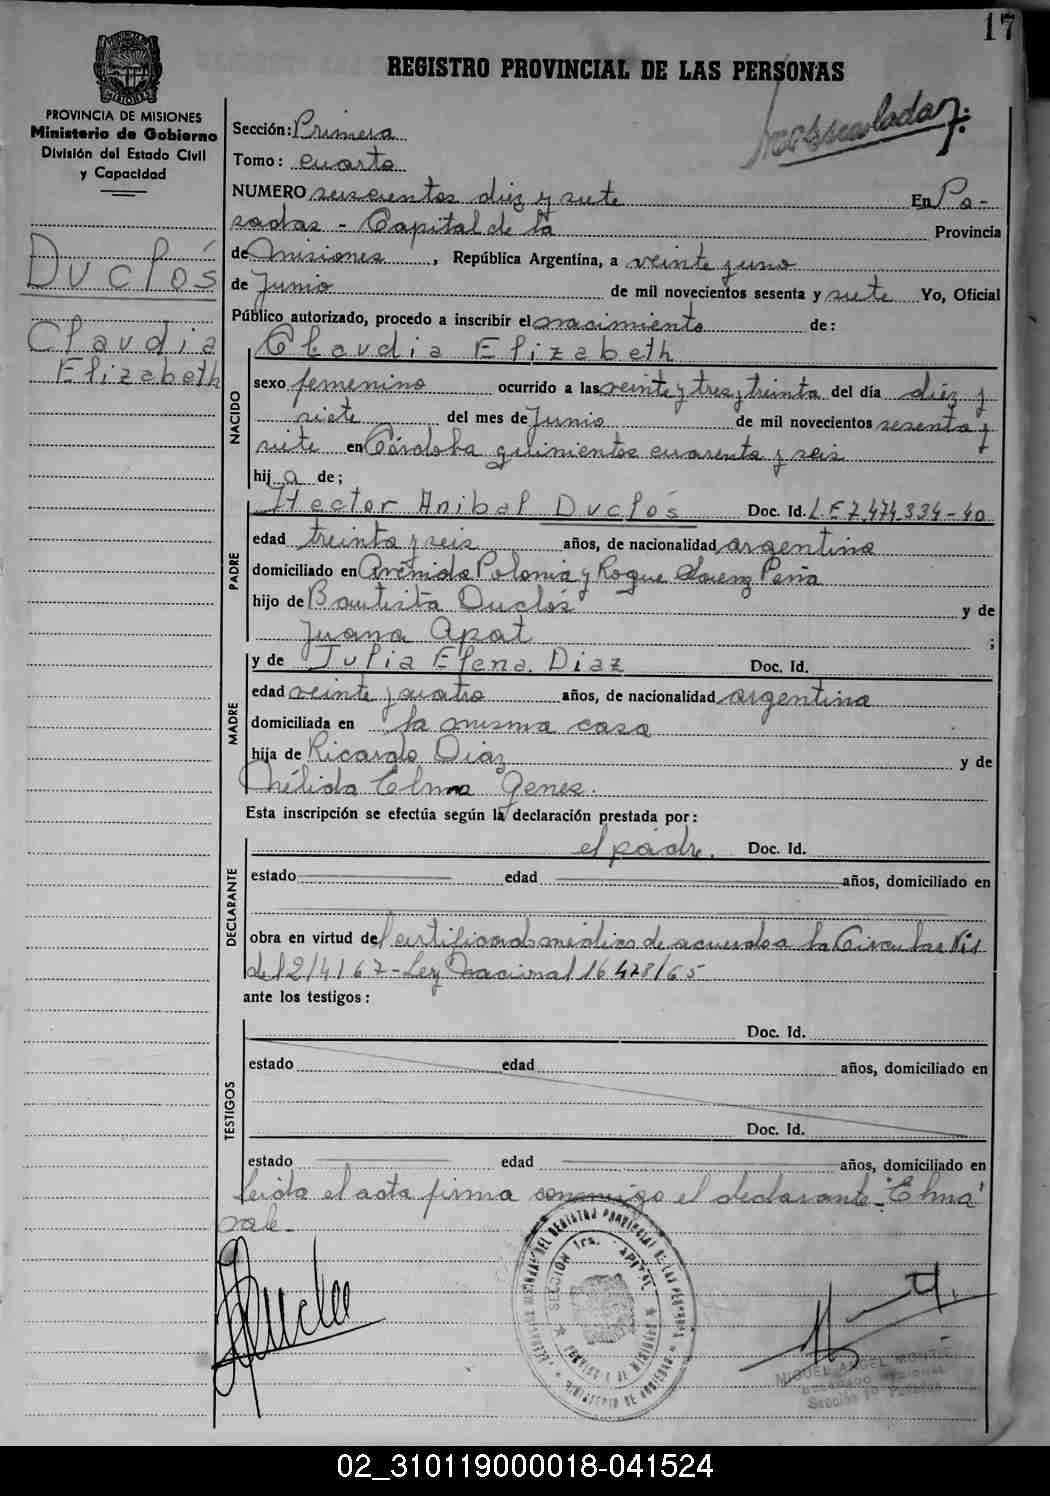 17
REGISTRO PROVINCIAL DE LAS PERSONAS
PROVINCIA DE MISIONES
Ministerio de Gobierno
División del Estado Civil
y Capacidad
Duclós
Claudia
Elizabeth
Sección: Primera
Tomo: cuarto
NUMERO seiscientos diez y siete En Po-
sadas - Capital de la Provincia
de Misiones, República Argentina, a veinte y uno
de Junio de mil novecientos sesenta y siete Yo, Oficial
Público autorizado, procedo a inscribir el nacimiento de:
NACIDO
Claudia Elizabeth
sexo femenino ocurrido a las veinte y tres y treinta del día diez y
siete del mes de Junio de mil novecientos sesenta y
siete en Córdoba quinientos cuarenta y seis
hija de;
PADRE
Hector Anibal Duclós Doc. Id. L.E 7.474.334-40
edad treinta y seis años, de nacionalidad argentina
domiciliado en Avenida Polonia y Roque Saenz Peña
hijo de Bautista Duclós y de
Juana Apat ;
MADRE
y de Julia Elena Diaz Doc. Id.
edad veinte y cuatro años, de nacionalidad argentina
domiciliada en la misma casa
hija de Ricardo Diaz y de
Nélida Elma Genes.
Esta inscripción se efectúa según la declaración prestada por:
DECLARANTE
el padre. Doc. Id.
estado edad años, domiciliado en
obra en virtud del certificado médico de acuerdo a la Circular Nº1
del 2/4/67 - Ley Nacional 16478/65
ante los testigos:
TESTIGOS
Doc. Id.
estado edad años, domiciliado en
Doc. Id.
estado edad años, domiciliado en
Leida el acta firma conmigo el declarante - "Elma"
vale -
SECCION 1ra. CAPITAL
MIGUEL ANGEL
02_310119000018-041524